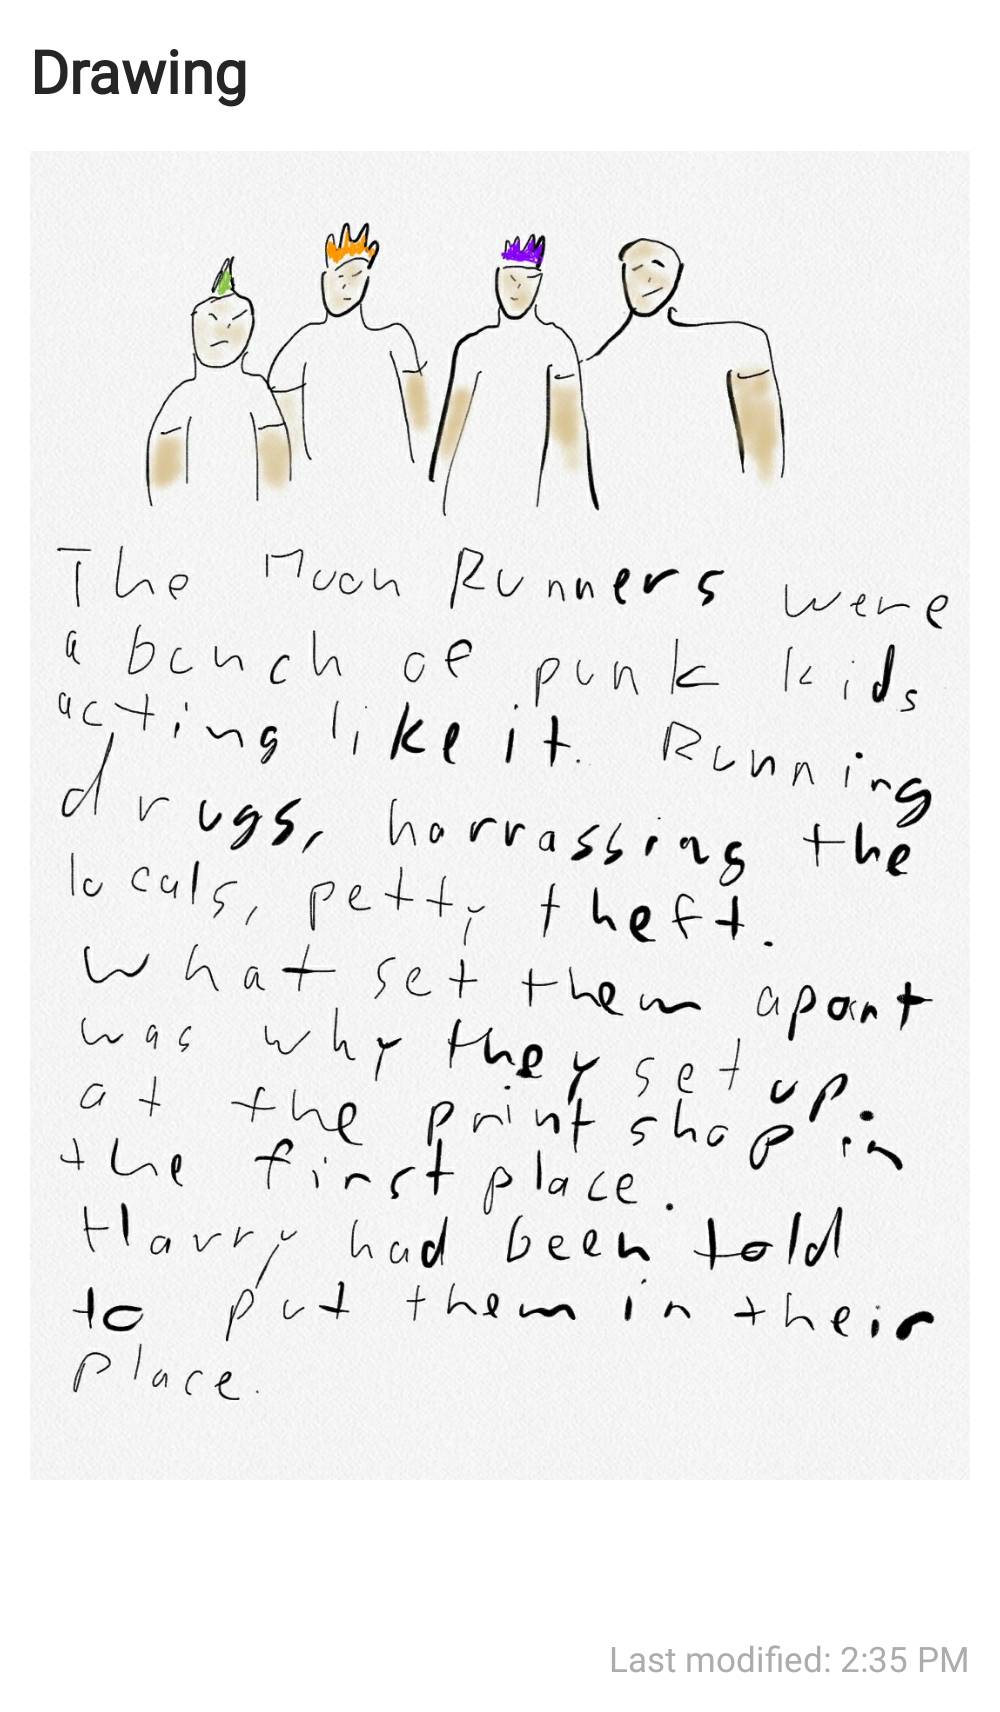 Drawing
The Moon Runners were
a bunch of punk kids
acting like it. Running
drugs, harrassing the
locals, petty theft.
What set them apart
was why they set up
at the print shop in
the first place.
Harry had been told
to put them in their
place.
Last modified: 2:35 PM